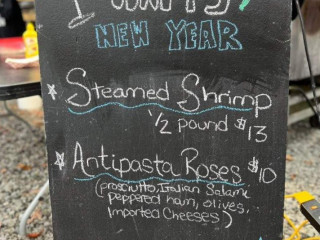 NEW YEAR
Steamed Shrimp
1/2 pound $13
Antipasta Roses $10
(prosciutto, Italian Salami,
peppered ham, olives,
Imported Cheeses)